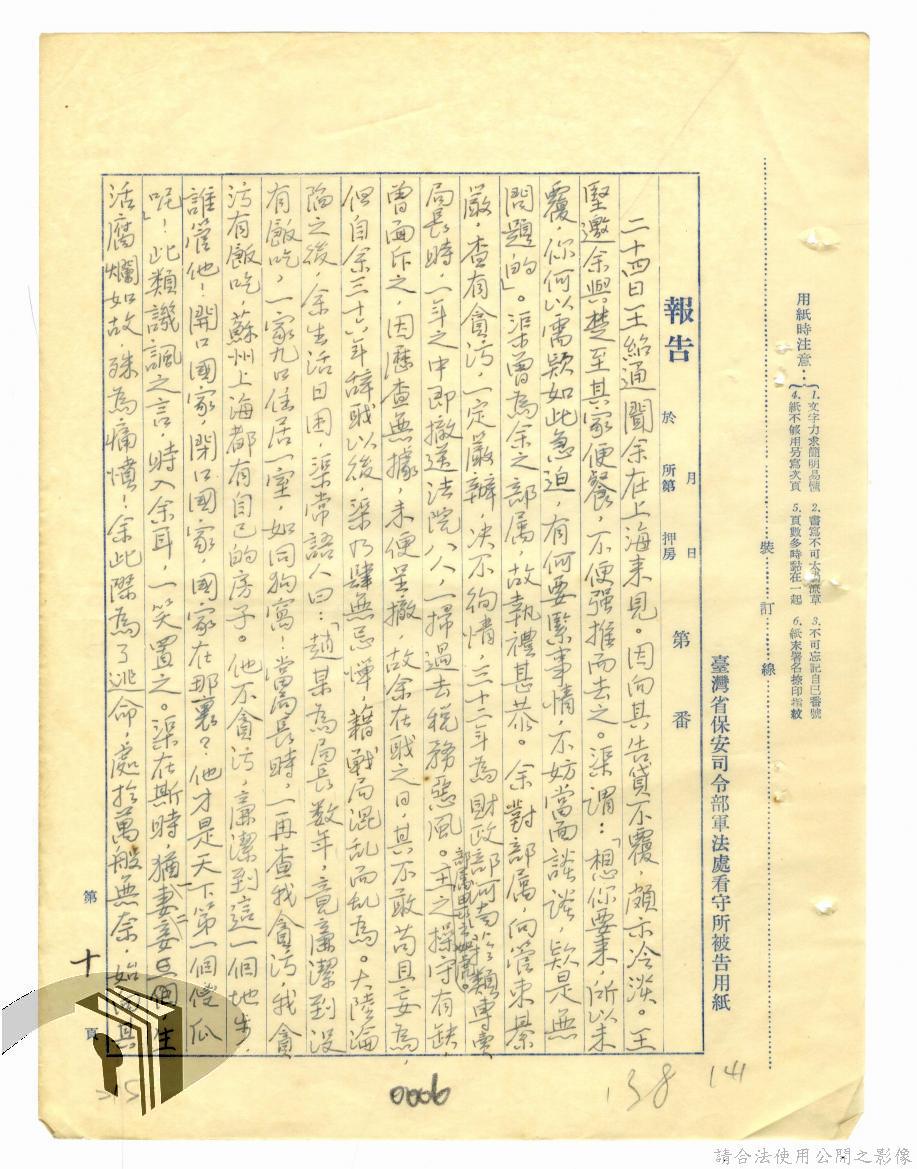 用紙時注意：
1. 文字力求簡明易懂　2. 書寫不可太潦草　3. 不可忘記自己番號
4. 紙不够用另寫次頁　5. 頁數多時點在一起　6. 紙末署名捺印指紋
裝訂線
臺灣省保安司令部軍法處看守所被告用紙
報告　於　所第　押房　月　日　第　番
二十四日王紹通聞余在上海來見。因向其告貸不覆，頗示冷淡。王
堅邀余與楚至其家便餐，不便强推而去之。渠謂：「想你要來，所以未
覆，你何以需款如此急迫，有何要緊事情，不妨當面談談，款是無
問題的」。渠曾為余之部属，故執禮甚恭。余對部属，向管束綦
嚴，查有貪污，一定嚴辦，决不徇情，三十二年為財政部河南菸類專賣
局長時，一年之中即撤送法院八人，一掃過去税務惡風。王之操守有缺，
曾面斥之，因歷查無據，未便呈撤，故余在職之日，其不敢苟且妄為，
但自余三十六年辭職以後，渠乃肆無忌憚，藉戰局混乱而乱為。大陸淪
陷之後，余生活日困，渠常語人曰：「趙某為局長数年，竟廉潔到沒
有飯吃，一家九口住居一室，如同狗窩；當局長時，一再查我貪污，我貪
污有飯吃，蘇州上海都有自己的房子。他不貪污，廉潔到這一個地步，
誰管他！開口國家，閉口國家，國家在那裏？他才是天下第一個傻瓜
呢！」此類譏諷之言，時入余耳，一笑置之。渠在斯時，猶一妻二妾，生
活腐爛如故，殊為痛憤！余此際為了逃命，處於萬般無奈，始
第十頁
0006
138
141
315
請合法使用公開之影像